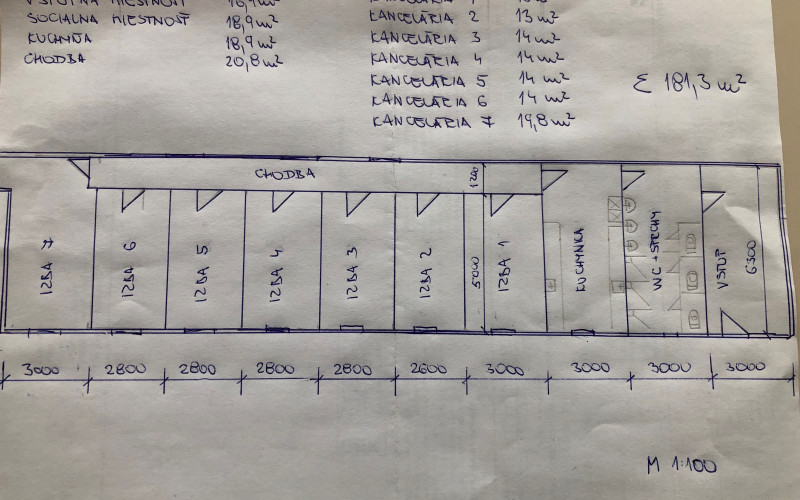 SOCIÁLNA MIESTNOSŤ 18,9 m²
KUCHYŇA 18,9 m²
CHODBA 20,8 m²
KANCELÁRIA 2 13 m²
KANCELÁRIA 3 14 m²
KANCELÁRIA 4 14 m²
KANCELÁRIA 5 14 m²
KANCELÁRIA 6 14 m²
KANCELÁRIA 7 19,8 m²
Σ 181,3 m²
CHODBA
1200
IZBA 7
IZBA 6
IZBA 5
IZBA 4
IZBA 3
IZBA 2
5000
IZBA 1
KUCHYNKA
WC + SPRCHY
VSTUP
6300
3000 2800 2800 2800 2800 2600 3000 3000 3000 3000
M 1:100